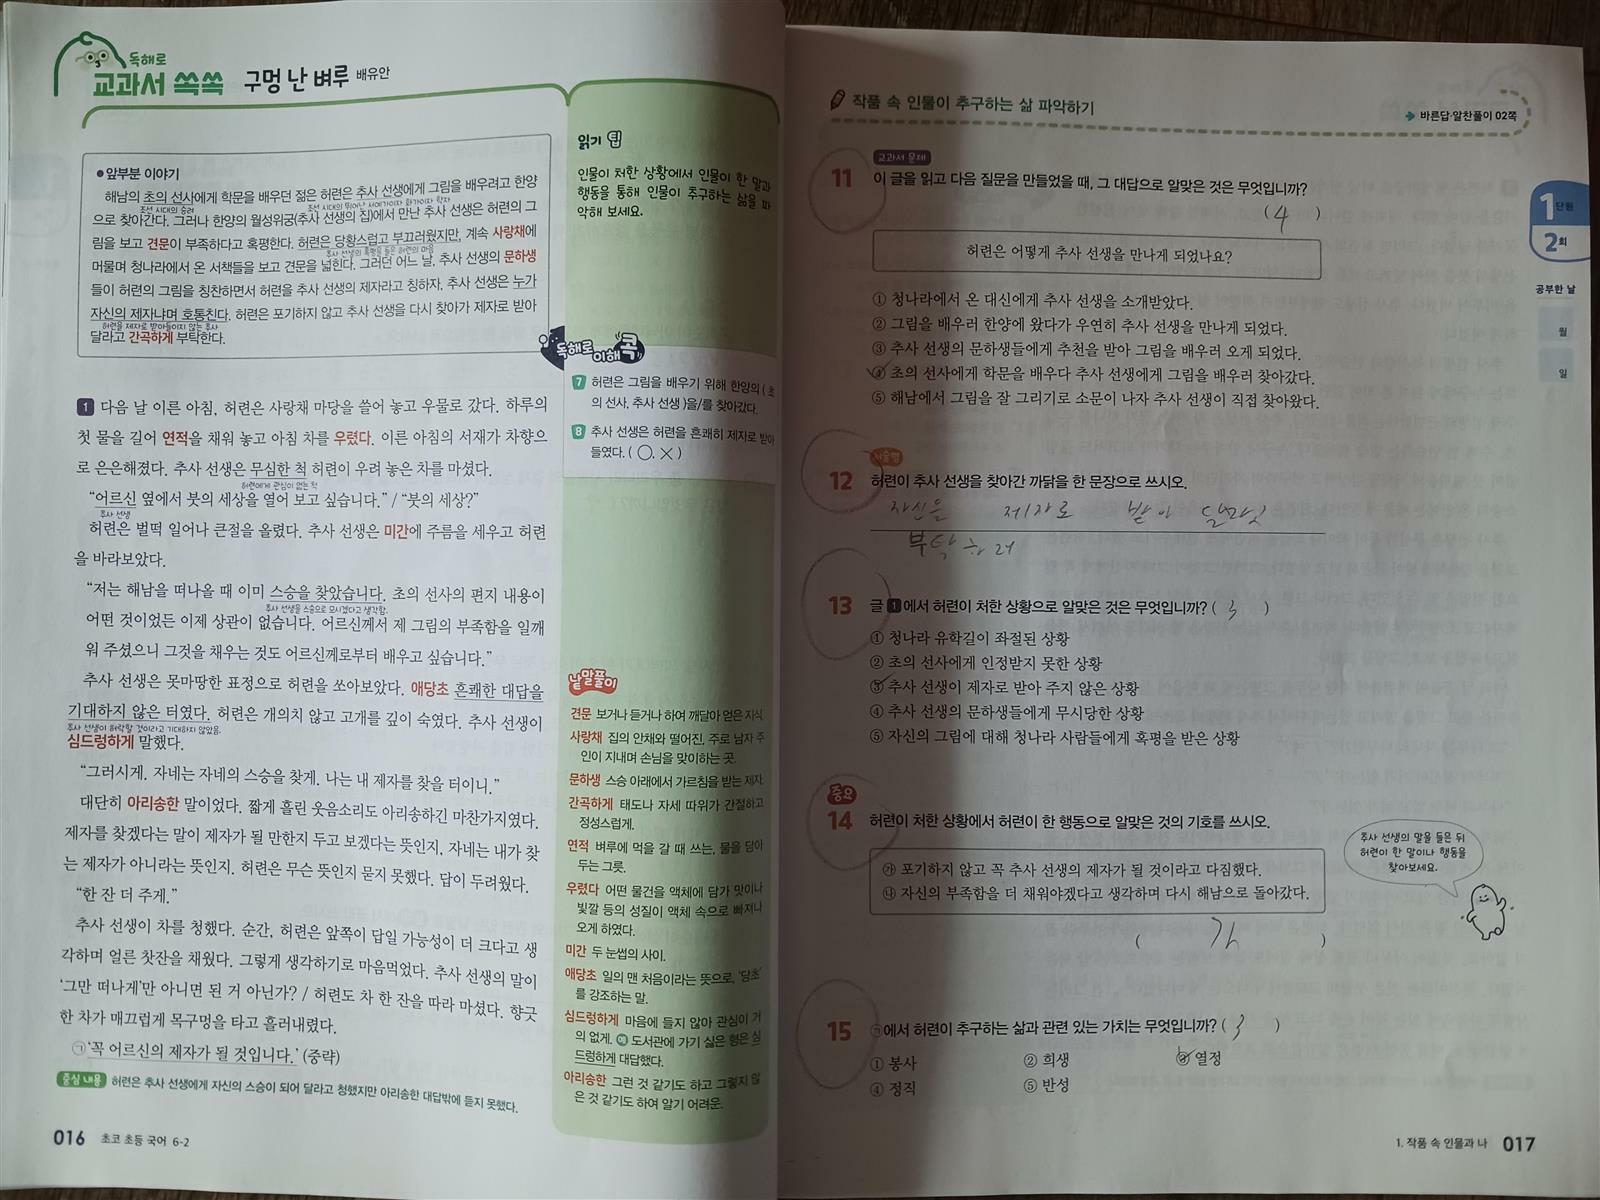 독해로
교과서 쏙쏙 구멍 난 벼루 배유안
• 앞부분 이야기
해남의 초의 선사에게 학문을 배우던 젊은 허련은 추사 선생에게 그림을 배우려고 한양
조선 시대의 승려 조선 시대의 뛰어난 서예가이자 화가이자 학자
으로 찾아간다. 그러나 한양의 월성위궁(추사 선생의 집)에서 만난 추사 선생은 허련의 그
림을 보고 견문이 부족하다고 혹평한다. 허련은 당황스럽고 부끄러웠지만, 계속 사랑채에
추사 선생의 혹평을 들은 허련의 마음
머물며 청나라에서 온 서책들을 보고 견문을 넓힌다. 그러던 어느 날, 추사 선생의 문하생
들이 허련의 그림을 칭찬하면서 허련을 추사 선생의 제자라고 칭하자, 추사 선생은 누가
자신의 제자냐며 호통친다. 허련은 포기하지 않고 추사 선생을 다시 찾아가 제자로 받아
허련을 제자로 받아들이지 않는 추사
달라고 간곡하게 부탁한다.
1 다음 날 이른 아침, 허련은 사랑채 마당을 쓸어 놓고 우물로 갔다. 하루의
첫 물을 길어 연적을 채워 놓고 아침 차를 우렸다. 이른 아침의 서재가 차향으
로 은은해졌다. 추사 선생은 무심한 척 허련이 우려 놓은 차를 마셨다.
허련에게 관심이 없는 척
“어르신 옆에서 붓의 세상을 열어 보고 싶습니다.” / “붓의 세상?”
추사 선생
허련은 벌떡 일어나 큰절을 올렸다. 추사 선생은 미간에 주름을 세우고 허련
을 바라보았다.
“저는 해남을 떠나올 때 이미 스승을 찾았습니다. 초의 선사의 편지 내용이
추사 선생을 스승으로 모시겠다고 생각함.
어떤 것이었든 이제 상관이 없습니다. 어르신께서 제 그림의 부족함을 일깨
워 주셨으니 그것을 채우는 것도 어르신께로부터 배우고 싶습니다.”
추사 선생은 못마땅한 표정으로 허련을 쏘아보았다. 애당초 흔쾌한 대답을
기대하지 않은 터였다. 허련은 개의치 않고 고개를 깊이 숙였다. 추사 선생이
추사 선생이 허락할 것이라고 기대하지 않았음.
심드렁하게 말했다.
“그러시게. 자네는 자네의 스승을 찾게. 나는 내 제자를 찾을 터이니.”
대단히 아리송한 말이었다. 짧게 흘린 웃음소리도 아리송하긴 마찬가지였다.
제자를 찾겠다는 말이 제자가 될 만한지 두고 보겠다는 뜻인지, 자네는 내가 찾
는 제자가 아니라는 뜻인지. 허련은 무슨 뜻인지 묻지 못했다. 답이 두려웠다.
“한 잔 더 주게.”
추사 선생이 차를 청했다. 순간, 허련은 앞쪽이 답일 가능성이 더 크다고 생
각하며 얼른 찻잔을 채웠다. 그렇게 생각하기로 마음먹었다. 추사 선생의 말이
‘그만 떠나게’만 아니면 된 거 아닌가? / 허련도 차 한 잔을 따라 마셨다. 향긋
한 차가 매끄럽게 목구멍을 타고 흘러내렸다.
㉠‘꼭 어르신의 제자가 될 것입니다.’ (중략)
중심 내용 허련은 추사 선생에게 자신의 스승이 되어 달라고 청했지만 아리송한 대답밖에 듣지 못했다.
016 초코 초등 국어 6-2
읽기 팁
인물이 처한 상황에서 인물이 한 말과
행동을 통해 인물이 추구하는 삶을 파
악해 보세요.
독해로 이해 콕
7 허련은 그림을 배우기 위해 한양의 ( 초
의 선사, 추사 선생 )을/를 찾아갔다.
8 추사 선생은 허련을 흔쾌히 제자로 받아
들였다. ( ○, × )
낱말풀이
견문 보거나 듣거나 하여 깨달아 얻은 지식.
사랑채 집의 안채와 떨어진, 주로 남자 주
인이 지내며 손님을 맞이하는 곳.
문하생 스승 아래에서 가르침을 받는 제자.
간곡하게 태도나 자세 따위가 간절하고
정성스럽게.
연적 벼루에 먹을 갈 때 쓰는, 물을 담아
두는 그릇.
우렸다 어떤 물건을 액체에 담가 맛이나
빛깔 등의 성질이 액체 속으로 빠져나
오게 하였다.
미간 두 눈썹의 사이.
애당초 일의 맨 처음이라는 뜻으로, ‘당초’
를 강조하는 말.
심드렁하게 마음에 들지 않아 관심이 거
의 없게. 예 도서관에 가기 싫은 형은 심
드렁하게 대답했다.
아리송한 그런 것 같기도 하고 그렇지 않
은 것 같기도 하여 알기 어려운.
작품 속 인물이 추구하는 삶 파악하기
바른답·알찬풀이 02쪽
1단원
2회
공부한 날
월
일
교과서 문제
11 이 글을 읽고 다음 질문을 만들었을 때, 그 대답으로 알맞은 것은 무엇입니까?
( 4 )
허련은 어떻게 추사 선생을 만나게 되었나요?
① 청나라에서 온 대신에게 추사 선생을 소개받았다.
② 그림을 배우러 한양에 왔다가 우연히 추사 선생을 만나게 되었다.
③ 추사 선생의 문하생들에게 추천을 받아 그림을 배우러 오게 되었다.
④ 초의 선사에게 학문을 배우다 추사 선생에게 그림을 배우러 찾아갔다.
⑤ 해남에서 그림을 잘 그리기로 소문이 나자 추사 선생이 직접 찾아왔다.
서술형
12 허련이 추사 선생을 찾아간 까닭을 한 문장으로 쓰시오.
자신을 제자로 받아 달라고
부탁하려
13 글 1에서 허련이 처한 상황으로 알맞은 것은 무엇입니까? ( 3 )
① 청나라 유학길이 좌절된 상황
② 초의 선사에게 인정받지 못한 상황
③ 추사 선생이 제자로 받아 주지 않은 상황
④ 추사 선생의 문하생들에게 무시당한 상황
⑤ 자신의 그림에 대해 청나라 사람들에게 혹평을 받은 상황
중요
14 허련이 처한 상황에서 허련이 한 행동으로 알맞은 것의 기호를 쓰시오.
㉮ 포기하지 않고 꼭 추사 선생의 제자가 될 것이라고 다짐했다.
㉯ 자신의 부족함을 더 채워야겠다고 생각하며 다시 해남으로 돌아갔다.
( 가 )
추사 선생의 말을 들은 뒤
허련이 한 말이나 행동을
찾아보세요.
15 ㉠에서 허련이 추구하는 삶과 관련 있는 가치는 무엇입니까? ( 3 )
① 봉사 ② 희생 ③ 열정
④ 정직 ⑤ 반성
1. 작품 속 인물과 나 017